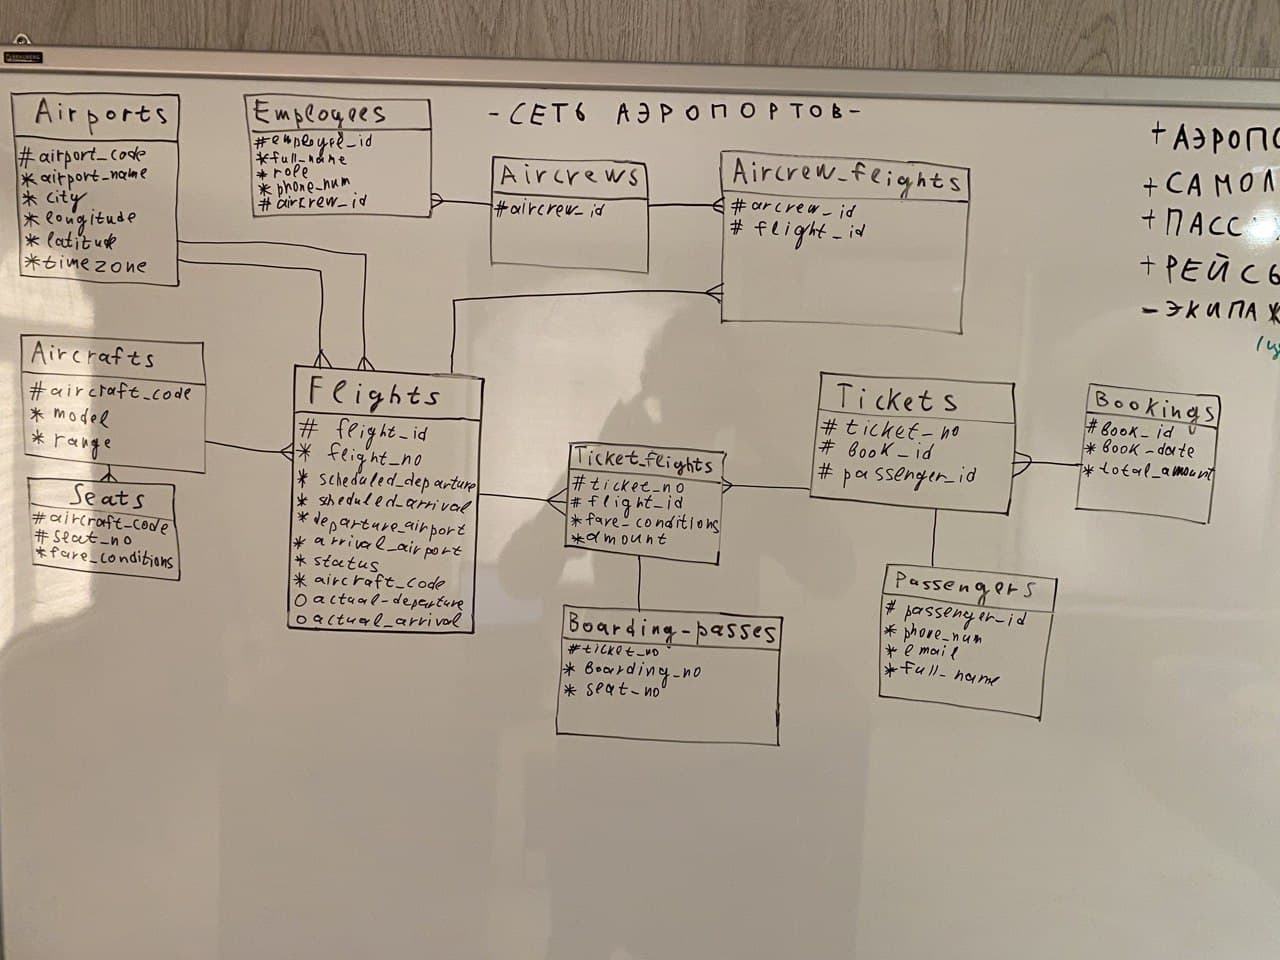 - СЕТЬ АЭРОПОРТОВ -
Airports
# airport_code
* airport_name
* city
* longitude
* latitude
* timezone
Employees
# employee_id
* full_name
* role
* phone_num
# aircrew_id
Aircrews
# aircrew_id
Aircrew_flights
# arcrew_id
# flight_id
+ АЭРОПО
+ САМОЛ
+ ПАСС
+ РЕЙСЫ
- ЭКИПАЖ
Aircrafts
# aircraft_code
* model
* range
Seats
# aircraft_code
# seat_no
* fare_conditions
Flights
# flight_id
* flight_no
* scheduled_departure
* scheduled_arrival
* departure_airport
* arrival_airport
* status
* aircraft_code
O actual-departure
O actual_arrival
Ticket_flights
# ticket_no
# flight_id
* fare_conditions
* amount
Tickets
# ticket_no
# book_id
# passenger_id
Bookings
# book_id
* book-date
* total_amount
Boarding-passes
# ticket_no
* boarding_no
* seat_no
Passengers
# passenger_id
* phone_num
* email
* full_name